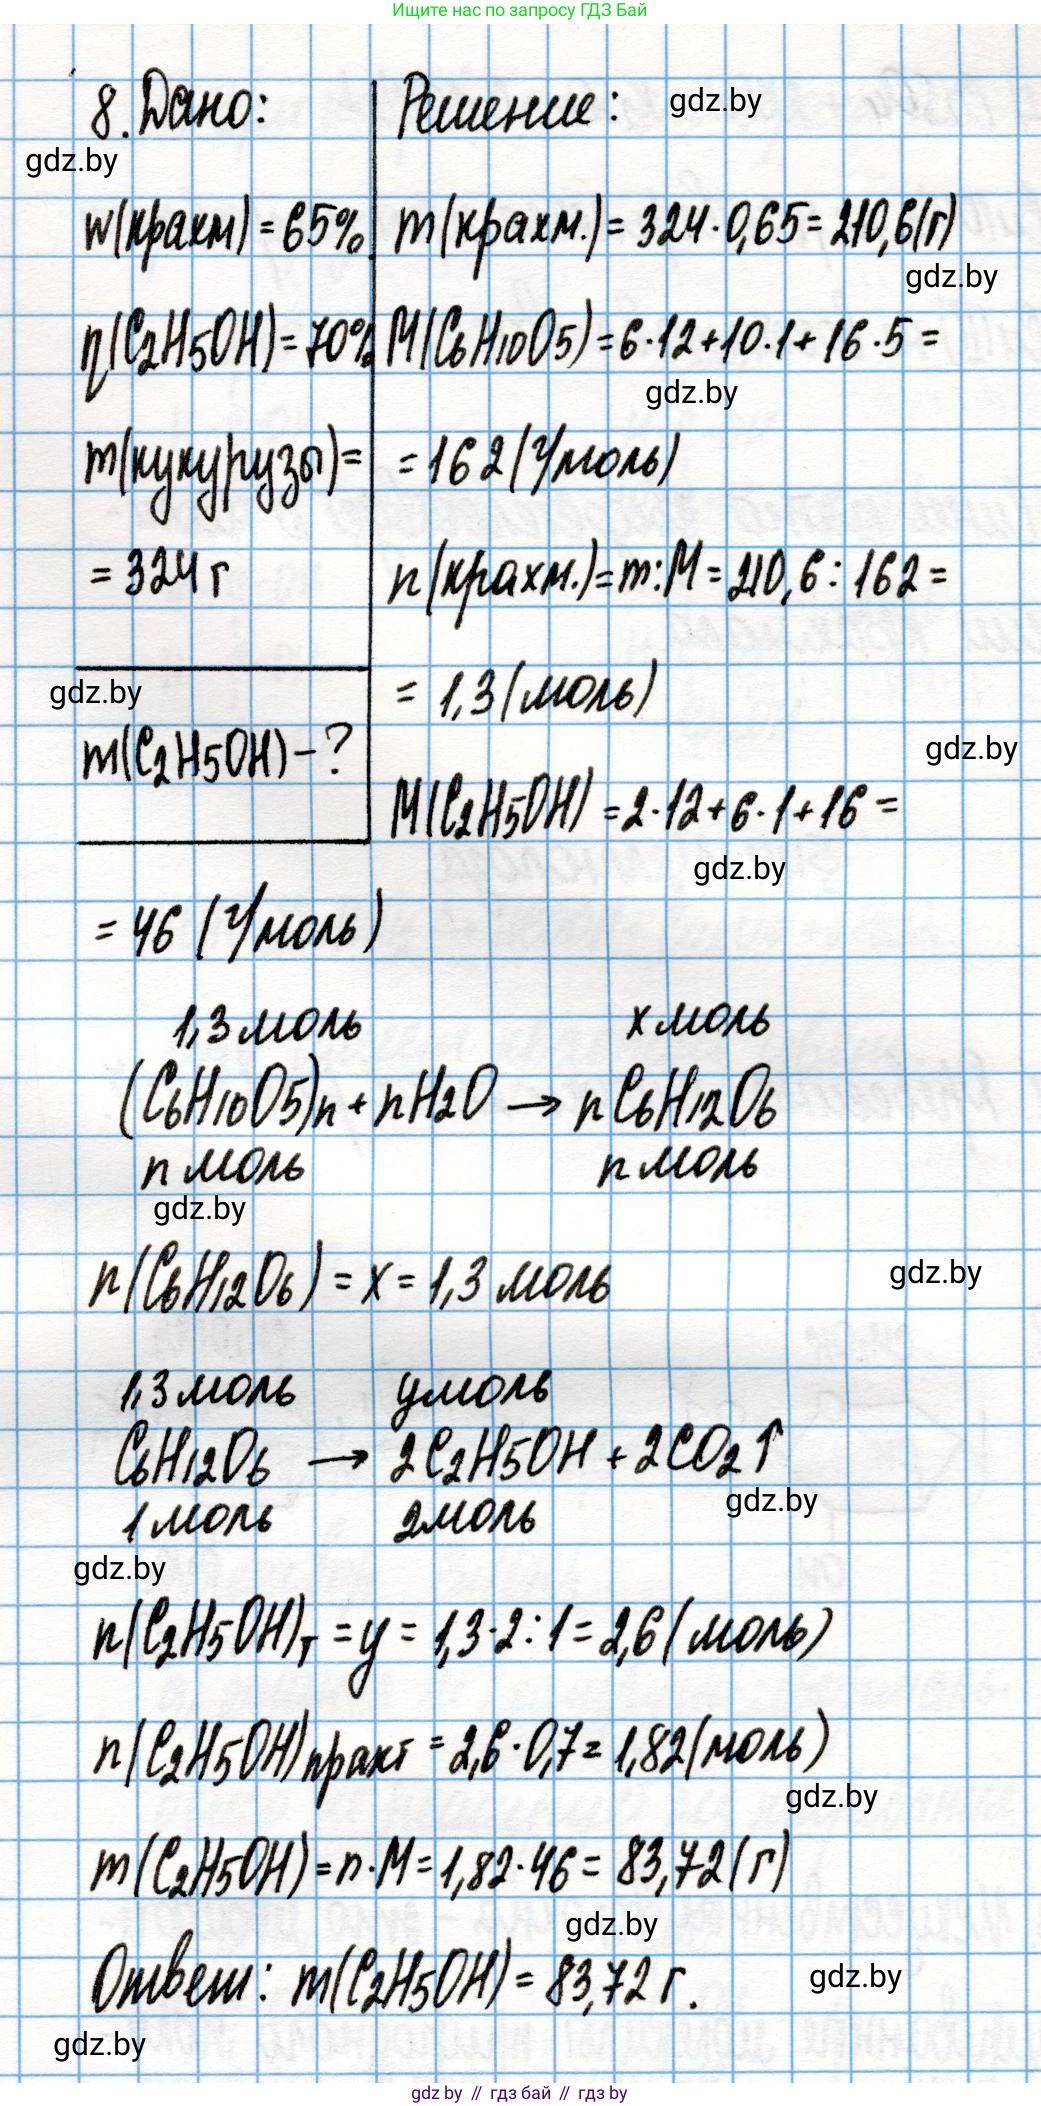 Ищите нас по запросу ГДЗ Бай
8. Дано:
Решение:
gdz.by
gdz.by
w(крахм) = 65%
m(крахм.) = 324·0,65 = 210,6(г)
gdz.by
η(C2H5OH) = 70%
M(C6H10O5) = 6·12+10·1+16·5 =
gdz.by
m(кукурузы) =
= 162 (г/моль)
= 324 г
n(крахм.) = m:M = 210,6 : 162 =
gdz.by
= 1,3 (моль)
m(C2H5OH) - ?
gdz.by
M(C2H5OH) = 2·12+6·1+16 =
gdz.by
= 46 (г/моль)
1,3 моль x моль
(C6H10O5)n + nH2O → nC6H12O6
n моль n моль
gdz.by
n(C6H12O6) = x = 1,3 моль
gdz.by
1,3 моль y моль
C6H12O6 → 2C2H5OH + 2CO2↑
1 моль 2 моль
gdz.by
gdz.by
n(C2H5OH)т = y = 1,3·2:1 = 2,6 (моль)
n(C2H5OH)практ = 2,6·0,7 = 1,82 (моль)
gdz.by
m(C2H5OH) = n·M = 1,82·46 = 83,72 (г)
gdz.by
Ответ: m(C2H5OH) = 83,72 г.
gdz.by
gdz.by
gdz by // гдз бай // гдз by